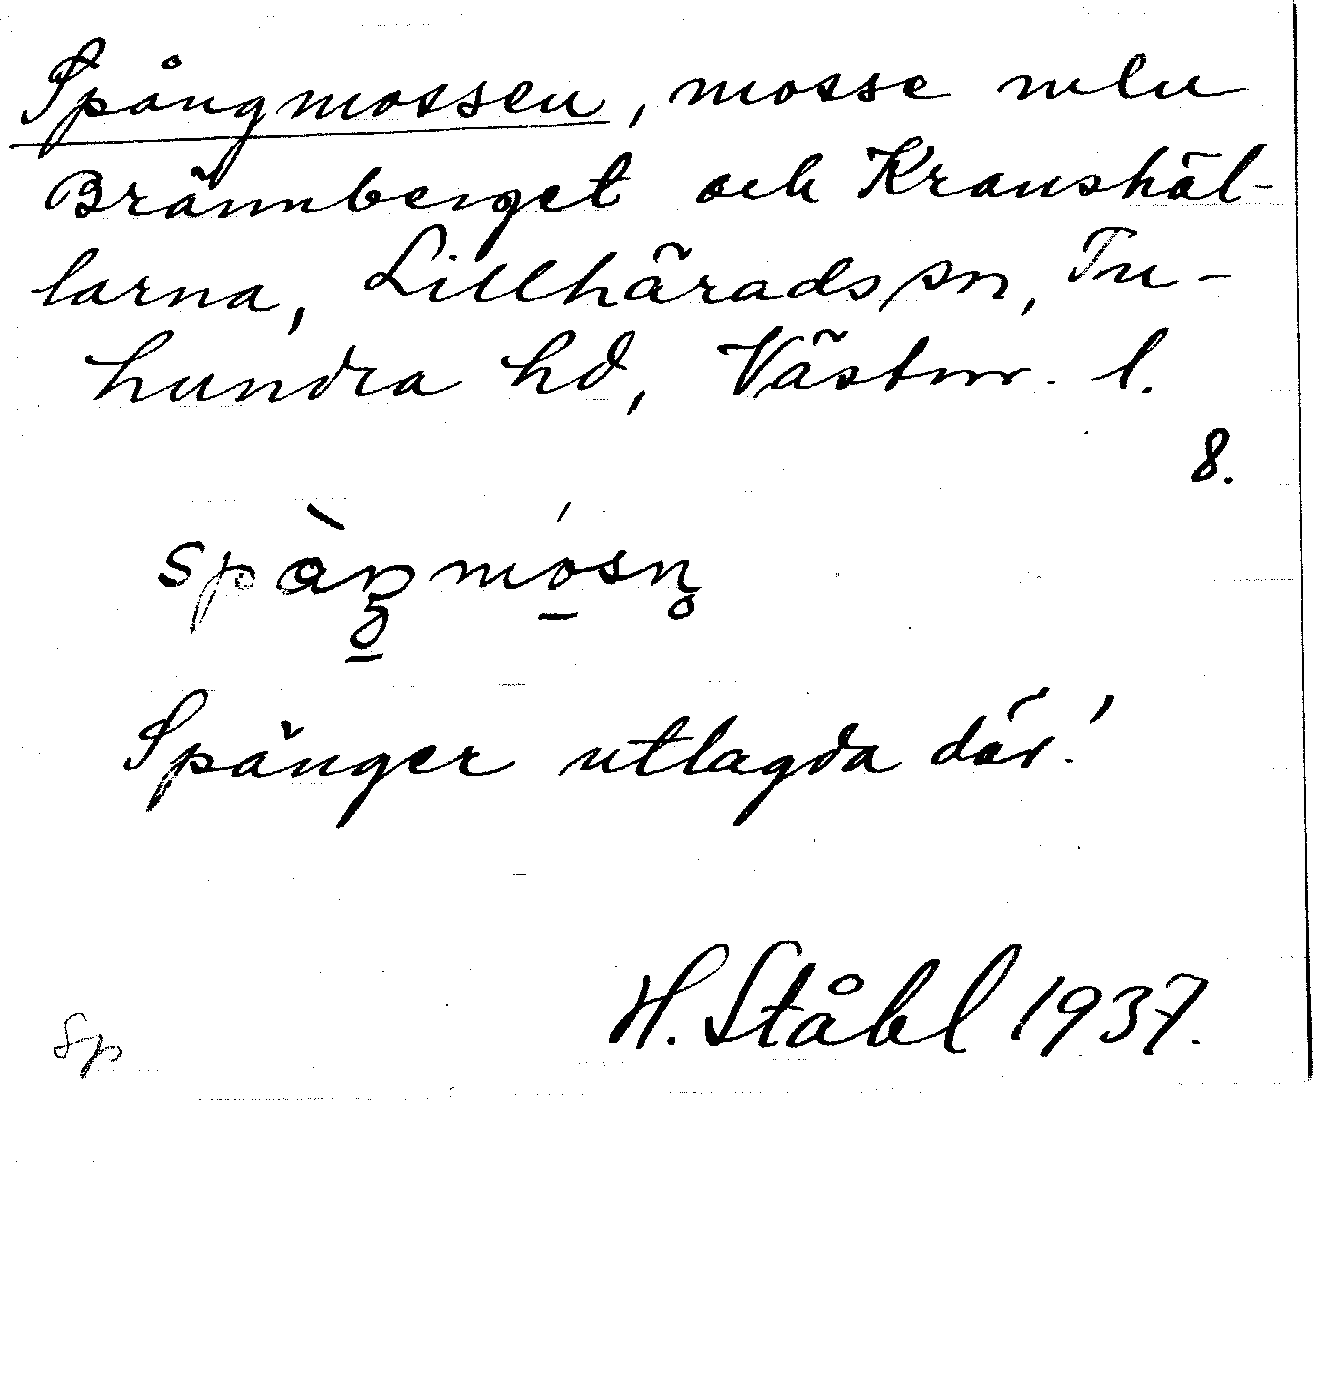 Spångmossen, mosse mln
Brännberget och Kranshäl-
larna, Lillhärads sn, Tu-
hundra hd, Västm. l.
8.
Spänger utlagda där!
H. Ståhl 1937.
Sp